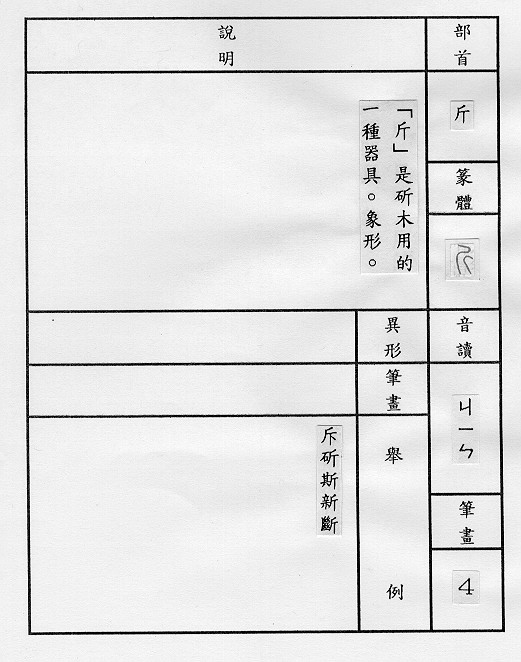 部首
斤
篆體
音讀
ㄐㄧㄣ
筆畫
4
說明
「斤」是斫木用的
一種器具。象形。
異形
筆畫
舉例
斥斫斯新斷